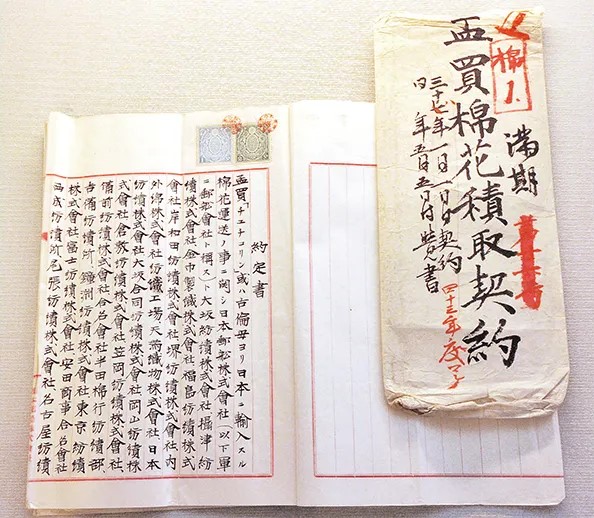 棉1.
満期
孟買棉花積取契約
三十七年一月一日契約
同年五月五日附覺書
四十三年度了
約定書
孟買「チユチコリン」或ハ古倫母ヨリ日本ニ輸入スル
棉花運送ノ事ニ関シ日本郵船株式會社(以下單
ニ郵船會社ト稱スト大坂紡績株式會社攝津紡
績株式會社金巾製織株式會社福島紡績株式
會社岸和田紡績株式會社堺紡績株式會社内
外綿株式會社紡織工場天満織物株式會社日本
紡績株式會社大坂合同紡績株式會社岡山紡績株
式會社倉敷紡績株式會社笠岡紡績株式會社
備前紡績株式會社合名會社半田棉行紡績部
吉備紡績所鐘淵紡績株式會社東京紡績
株式會社富士紡績株式會社安田商事合名會社
西成紡績所尾張紡績株式會社名古屋紡績